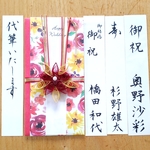 御祝
奥野沙彩
寿
杉野雄太
御結婚
御祝
橋田和代
Happy Wedding
代筆いたします